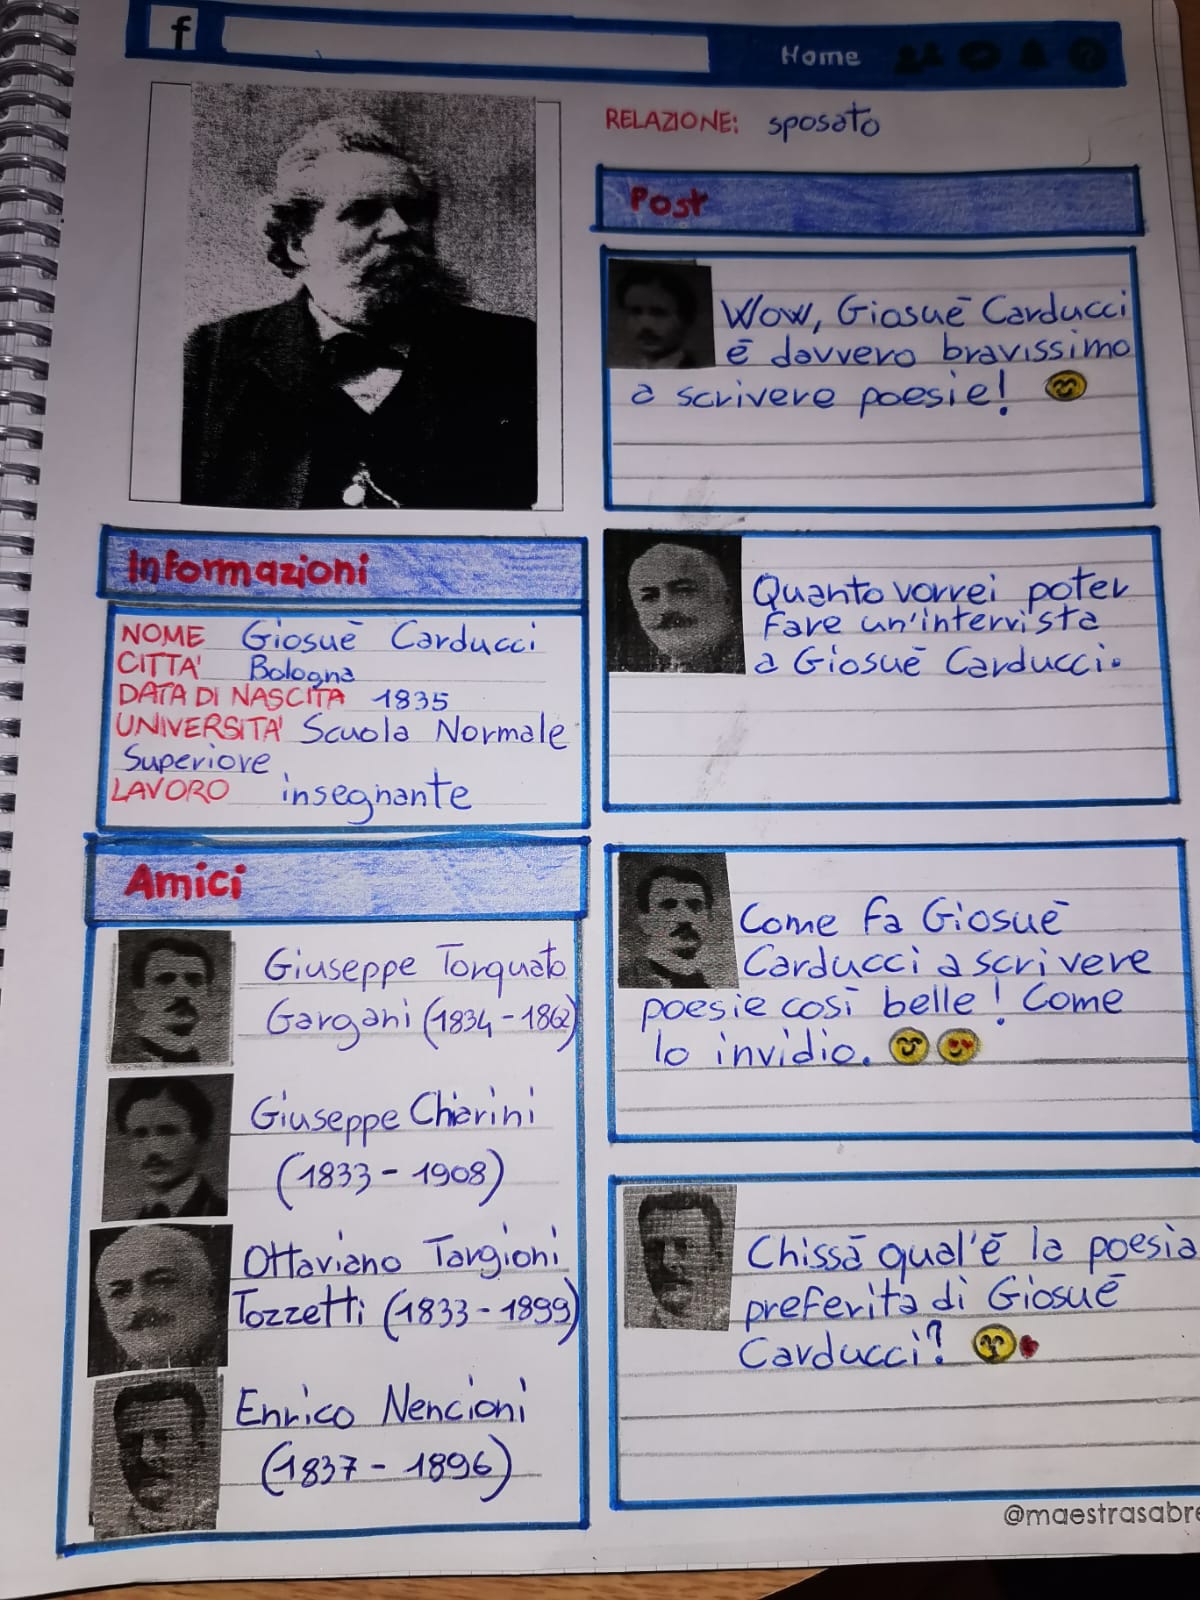 f
Home
RELAZIONE: sposato
Post
Wow, Giosuè Carducci
è davvero bravissimo
a scrivere poesie!
Quanto vorrei poter
fare un'intervista
a Giosuè Carducci.
Come fa Giosuè
Carducci a scrivere
poesie così belle! Come
lo invidio.
Chissà qual'è la poesia
preferita di Giosuè
Carducci?
Informazioni
NOME Giosuè Carducci
CITTA' Bologna
DATA DI NASCITA 1835
UNIVERSITA' Scuola Normale
Superiore
LAVORO insegnante
Amici
Giuseppe Torquato
Gargani (1834-1862)
Giuseppe Chiarini
(1833-1908)
Ottaviano Targioni
Tozzetti (1833-1899)
Enrico Nencioni
(1837-1896)
@maestrasabre